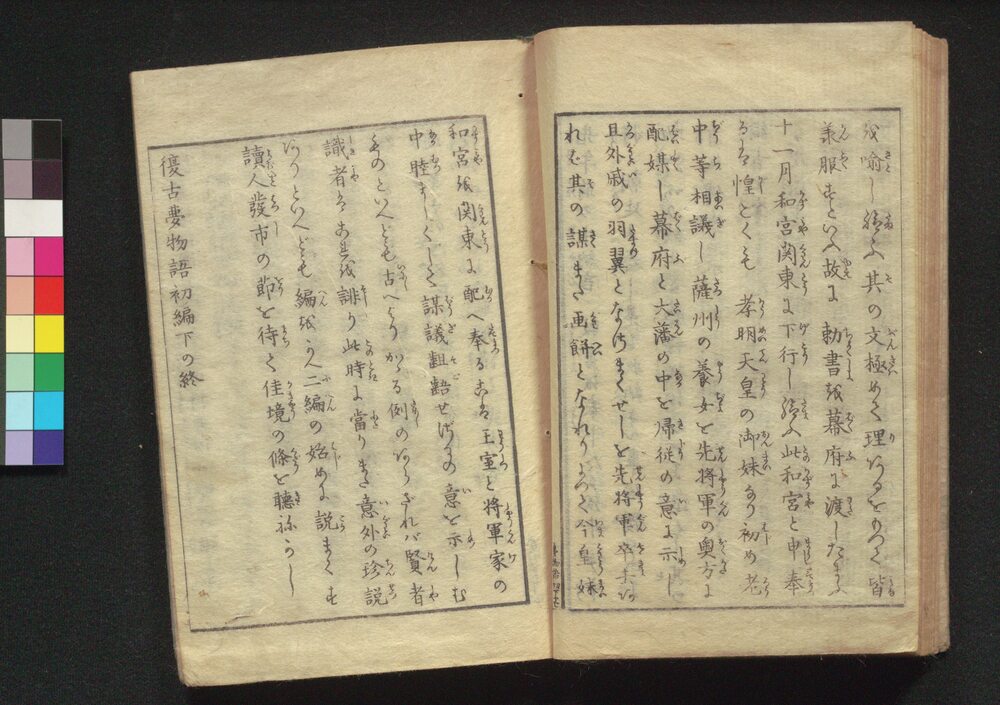 を喩し給ふ其の文極めて理あるをもつて皆
承服すといふ故に　勅書を幕府に渡したまふ
十一月和宮関東に下行し給ふ此和宮と申奉
るは惶とくも　孝明天皇の御妹なり初め老
中等相議し薩州の養女を先将軍の奥方に
配媒し幕府と大藩の中を帰従の意に示し
且外戚の羽翼となさまくせしを先将軍卒去
れば其の謀また画餅となれりよつて今皇妹
和宮を関東に配へ奉るこは王室と将軍家の
中睦ましくして謀議齟齬せざるの意を示しむ
ものといへども古へよりかゝる例のあらざれバ賢者
識者はこれを誹り此時に當りまた意外の珍説
ありといへども編をかえ二編の始めに説まくす
讀人發市の節を待て佳境の條を聴ねかし
復古夢物語初編下の終